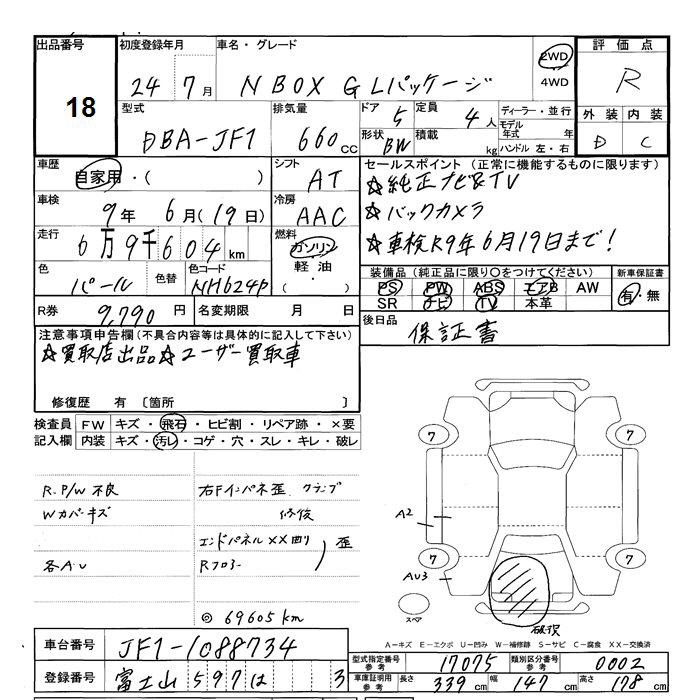 出品番号 初度登録年月 車名・グレード 評価点
18 24年 7月 N BOX G Lパッケージ 2WD 4WD R
型式 排気量 ドア 5 定員 4人 ディーラー・並行 外装 内装
DBA-JF1 660cc 形状 BW 積載 kg モデル年式 年 ハンドル 左・右 D C
車歴 シフト セールスポイント(正常に機能するものに限ります)
自家用・( ) AT ☆純正ナビ&TV
車検 冷房 ☆バックカメラ
9年 6月(19日) AAC ☆車検R9年6月19日まで!
走行 6万9千604km 燃料 ガソリン 軽油 ( ・ )
色 パール 色替 色コード NH624P
装備品(純正品に限り○をつけてください) 新車保証書
PS PW ABS エアB AW 有・無
SR ナビ TV 本革
R券 9,790円 名変期限 月 日
後日品 保証書
注意事項申告欄(不具合内容等は具体的に記入して下さい)
☆買取店出品☆ユーザー買取車
修復歴 有 〔箇所 〕
検査員 FW キズ・飛石・ヒビ割・リペア跡・×要
記入欄 内装 キズ・汚レ・コゲ・穴・スレ・キレ・破レ
R.P/W不良 右Fインパネ歪 クランプ
Wカバーキズ 修復
エンドパネルXX回り ) 歪
各A.U Rフロア
◎69605km
7 7
A2
7 7
AU3
スペア
破損
A-キズ E-エクボ U-凹み W-補修跡 S-サビ C-腐食 XX-交換済
車台番号 JF1-1088734
登録番号 富士山 597 は 3
型式指定番号 参考 17075 類別区分番号 参考 0002
車庫証明用 参考 長さ 339cm 幅 147cm 高さ 178cm